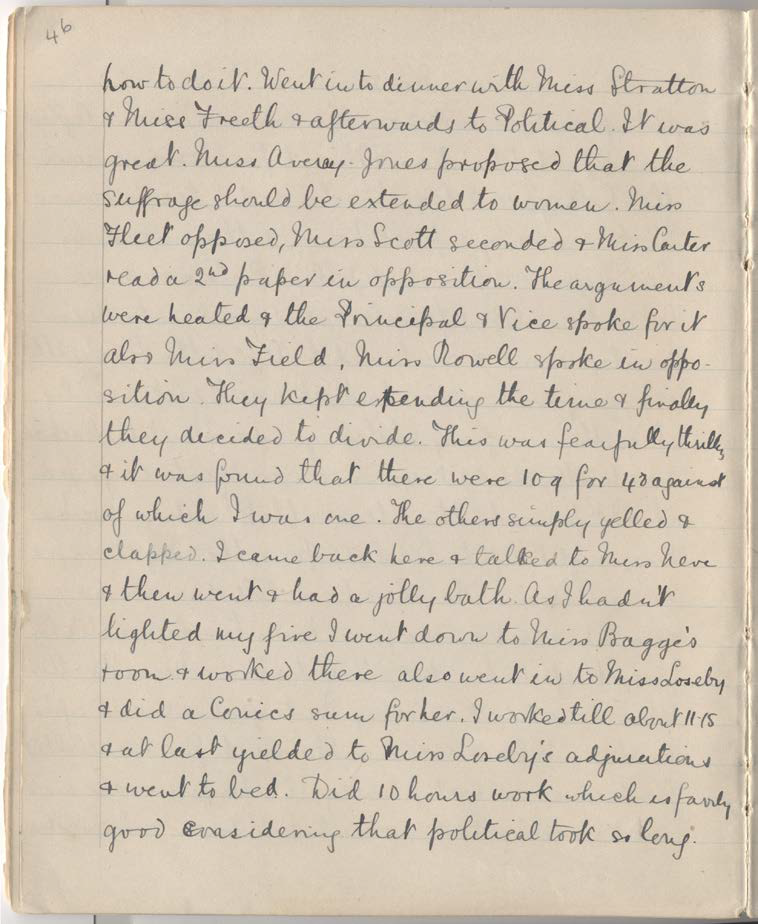 46
how to do it. Went in to dinner with Miss Stratton
& Miss Freeth & afterwards to Political. It was
great. Miss Avery-Jones proposed that the
suffrage should be extended to women. Miss
Fleet opposed, Miss Scott seconded & Miss Carter
read a 2nd paper in opposition. The arguments
were heated & the Principal & Vice spoke for it
also Miss Field, Miss Rowell spoke in oppo-
sition. They kept extending the time & finally
they decided to divide. This was fearfully thrilling
& it was found that there were 109 for 43 against
of which I was one. The others simply yelled &
clapped. I came back here & talked to Miss Neve
& then went & had a jolly bath. As I hadn't
lighted my fire I went down to Miss Bagge's
room & worked there also went in to Miss Loseby
& did a Conics sum for her. I worked till about 11-15
& at last yielded to Miss Loseby's adjurations
& went to bed. Did 10 hours work which is fairly
good considering that political took so long.